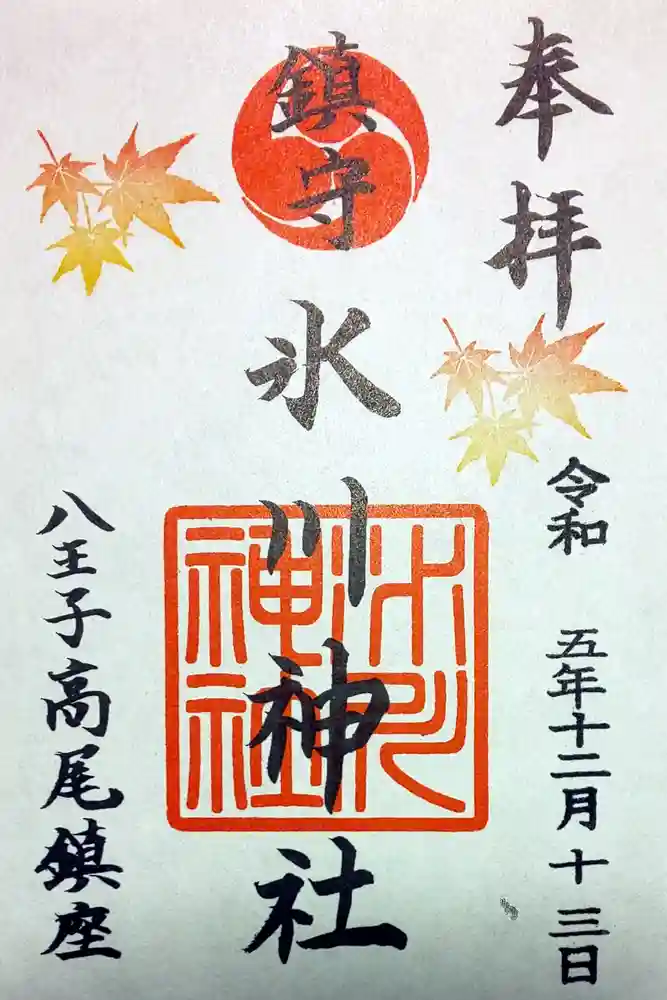 奉拝
令和 五年十二月十三日
鎮守氷川神社
氷川
神社
八王子高尾鎮座